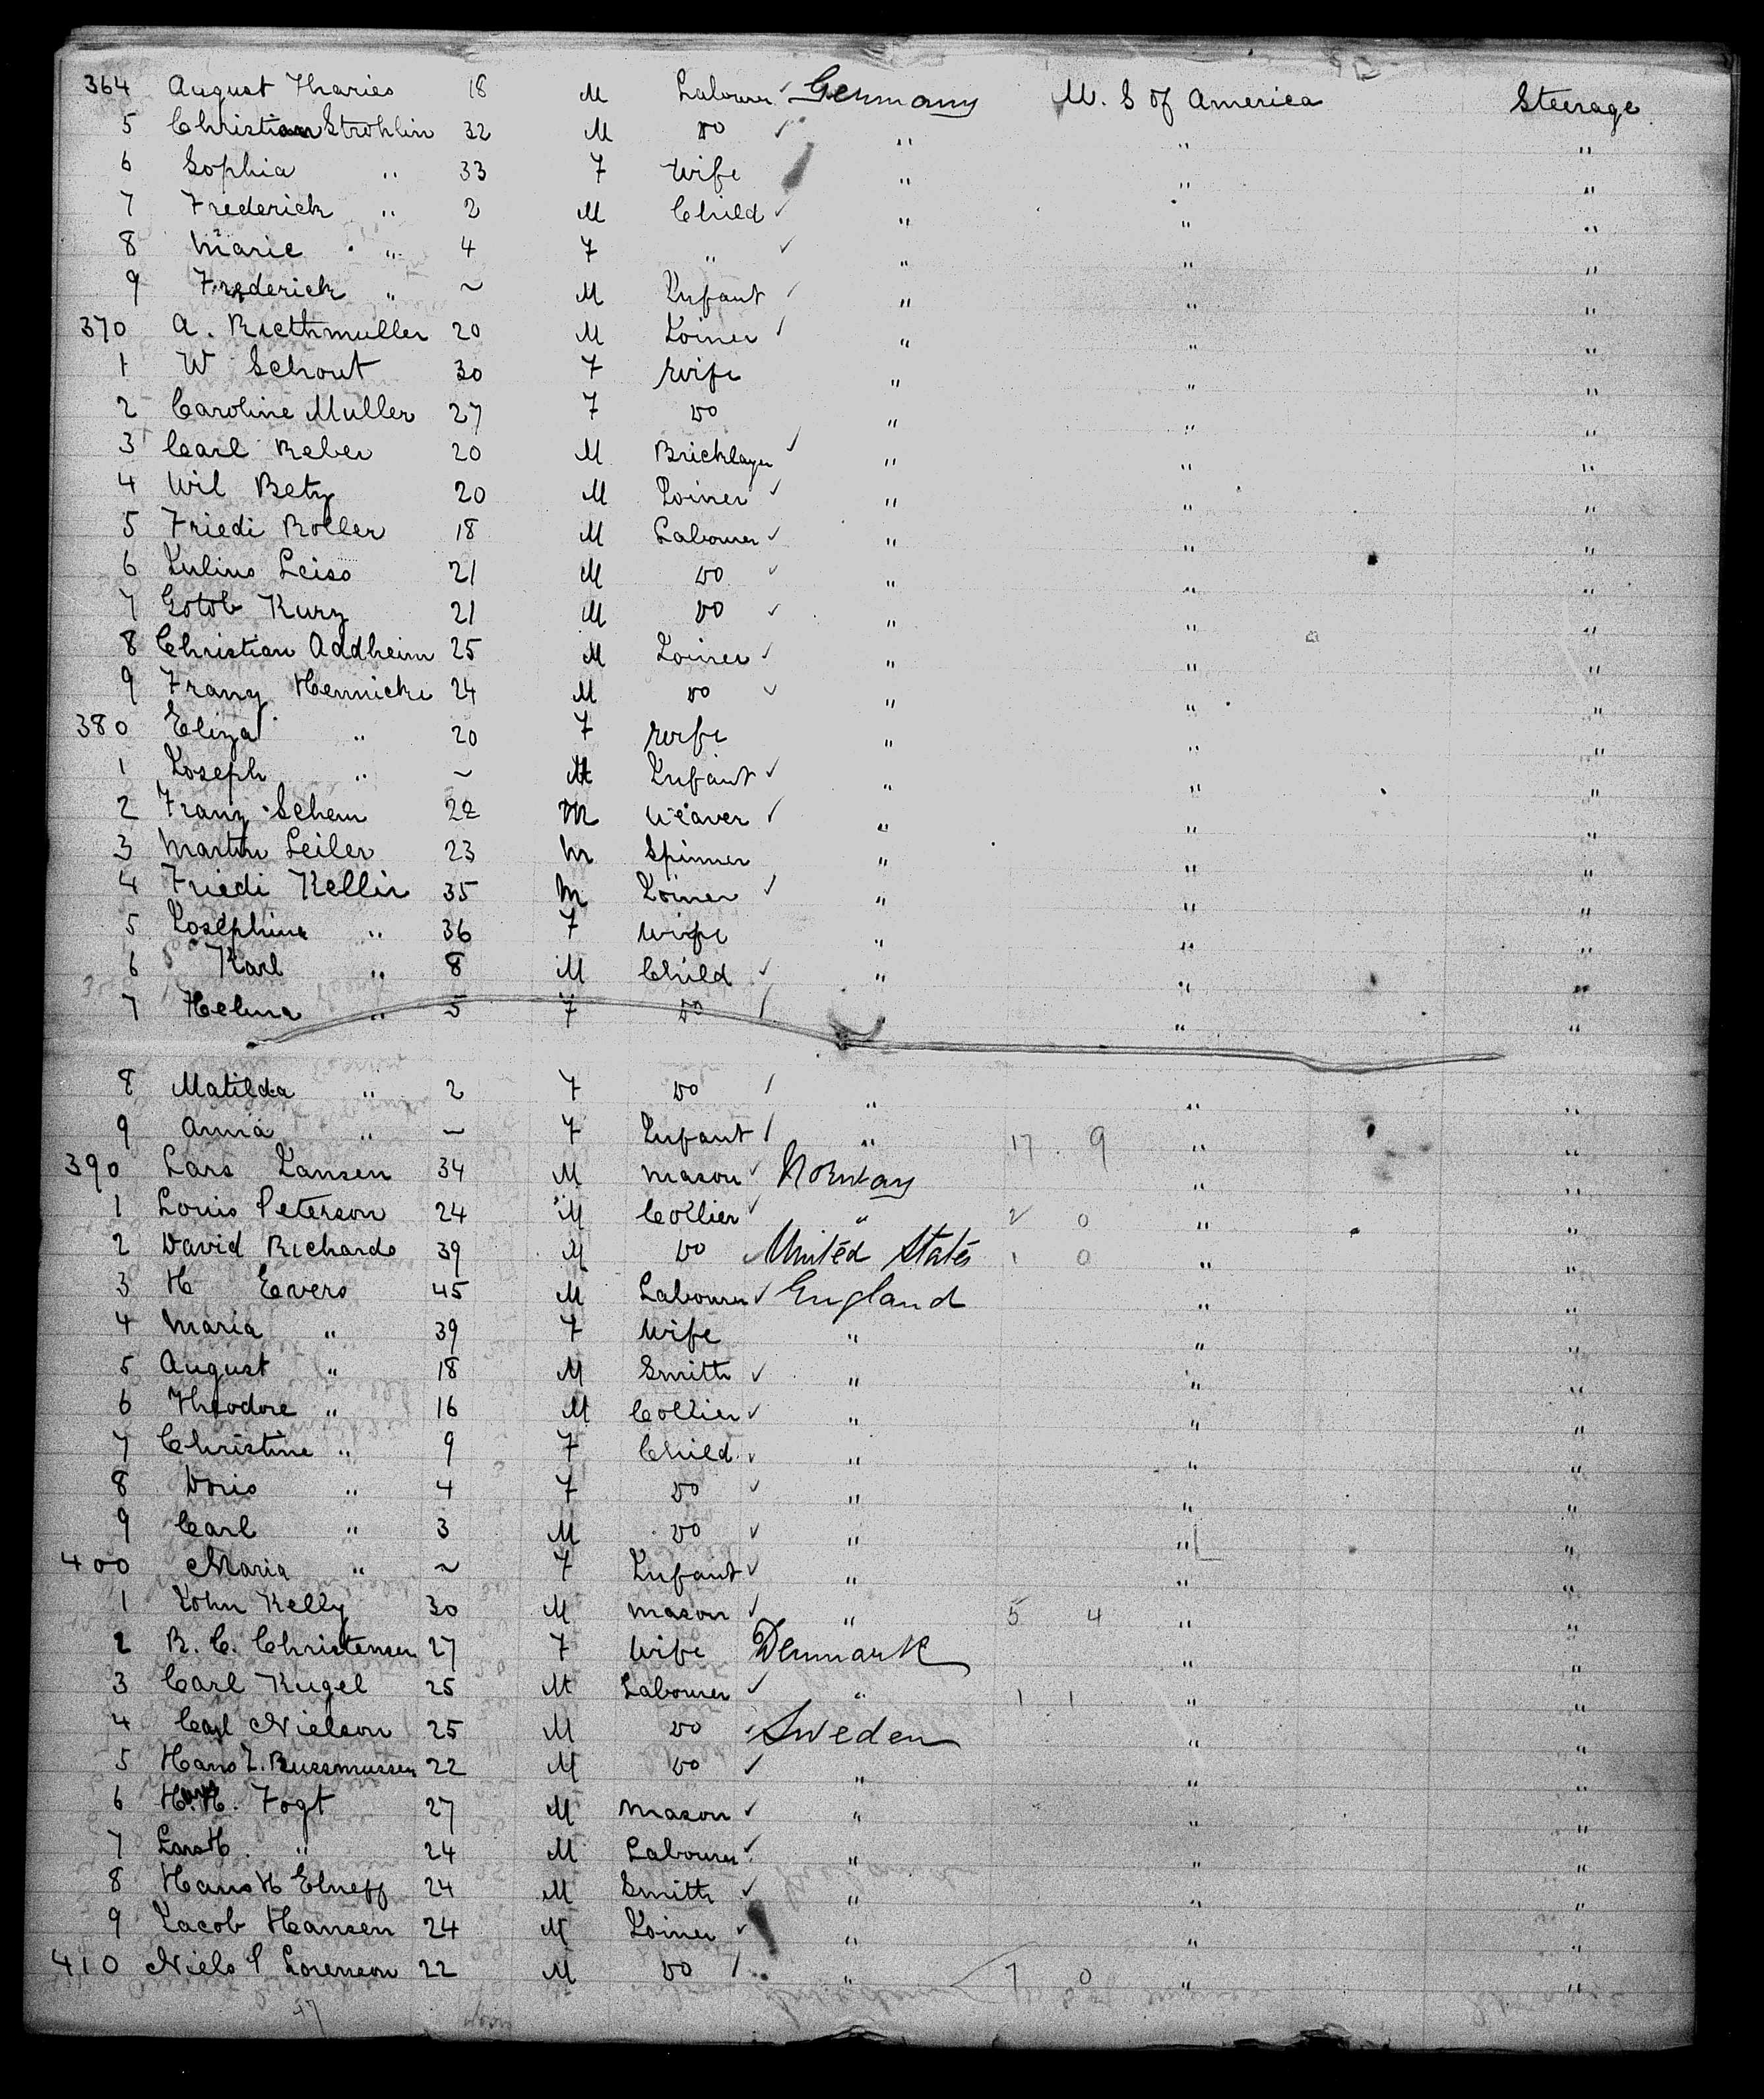 364 August Tharies 18 M Labourer Germany U. S of America Steerage
5 Christian Strohlin 32 M Do " " "
6 Sophia " 33 F Wife " " "
7 Frederick " 2 M Child " " "
8 Marie " 4 F " " " "
9 Frederick " ~ M Infant " " "
370 A. Riethmuller 20 M Joiner " " "
1 W Schout 30 F Wife " " "
2 Caroline Muller 27 F Do " " "
3 Carl Reber 20 M Bricklayer " " "
4 Wil Betz 20 M Joiner " " "
5 Friedi Roller 18 M Labourer " " "
6 Julius Leiss 21 M Do " " "
7 Gotob Kurz 21 M Do " " "
8 Christian Addheim 25 M Joiner " " "
9 Franz Hennicke 24 M Do " " "
380 Eliza " 20 F Wife " " "
1 Joseph " ~ M Infant " " "
2 Franz Schem 22 M Weaver " " "
3 Martin Leiler 23 M Spinner " " "
4 Friedi Kellir 35 M Joiner " " "
5 Josephine " 36 F Wife " " "
6 Karl " 8 M Child " " "
7 Helma " 5 F Do " "
8 Matilda " 2 F Do " " "
9 Anna " ~ F Infant " 17 9 " "
390 Lars Jansen 34 M Mason Norway " "
1 Louis Peterson 24 M Collier " 2 0 " "
2 David Richards 39 M Do United States 1 0 " "
3 H Evers 45 M Labourer England " "
4 Maria " 39 F Wife " " "
5 August " 18 M Smith " " "
6 Theodore " 16 M Collier " " "
7 Christine " 9 F Child " " "
8 Doris " 4 F Do " " "
9 Carl " 3 M Do " " "
400 Maria " ~ F Infant " " "
1 John Kelly 30 M Mason " 5 4 " "
2 R. C. Christensen 27 F Wife Denmark " "
3 Carl Kugel 25 M Labourer " 1 1 " "
4 Carl Nielson 25 M Do Sweden " "
5 Hans J. Russmussen 22 M Do " " "
6 H. Fogt 27 M Mason " " "
7 Lars H. " 24 M Labourer " " "
8 Hans H 24 M Smith " " "
9 Jacob Hansen 24 M Joiner " " "
410 Niels P Lorenson 22 M Do " 7 0 " "
47